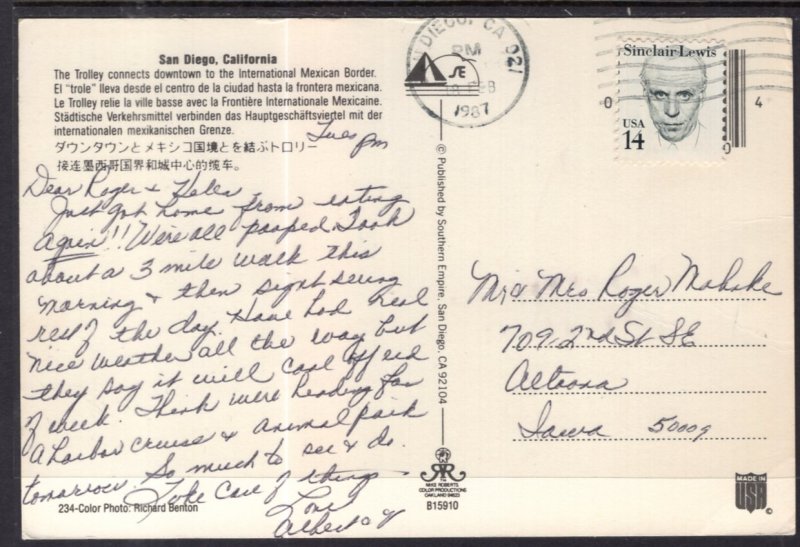 San Diego, California
The Trolley connects downtown to the International Mexican Border.
El "trole" lleva desde el centro de la ciudad hasta la frontera mexicana.
Le Trolley relie la ville basse avec la Frontière Internationale Mexicaine.
Städtische Verkehrsmittel verbinden das Hauptgeschäftsviertel mit der
internationalen mexikanischen Grenze.
ダウンタウンとメキシコ国境とを結ぶトロリー
接连墨西哥国界和城中心的缆车。
Tues pm
Dear Roger &
Just got home from eating
again!! We're all pooped. Took
about a 3 mile walk this
morning & then sight seeing
rest of the day. Have had real
nice weather all the way but
they say it will cool off end
of week. Think we're heading for
a harbor cruise & animal park
tomorrow. So much to see & do.
Take care of things
Love
Albert &
234-Color Photo: Richard Benton
© Published by Southern Empire, San Diego, CA 92104
MIKE ROBERTS
COLOR PRODUCTIONS
OAKLAND 94623
B15910
SAN DIEGO, CA 921
PM
FEB
1987
SE
Sinclair Lewis
USA
14
0
4
0
Mr & Mrs Roger
709 2nd St SE
Altoona
Iowa 50009
MADE IN
USA
©